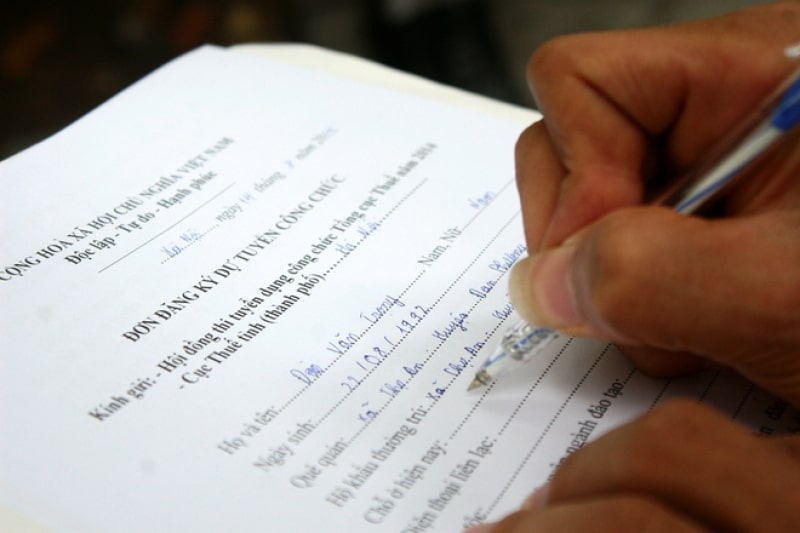 CỘNG HOÀ XÃ HỘI CHỦ NGHĨA VIỆT NAM
Độc lập - Tự do - Hạnh phúc
Hà Nội, ngày 14 tháng năm
ĐƠN ĐĂNG KÝ DỰ TUYỂN CÔNG CHỨC
Kính gửi: - Hội đồng thi tuyển dụng công chức Tổng cục Thuế năm 2014
-Cục Thuế tỉnh (thành phố) Hà Nội
Họ và tên: Văn Trọng Nam, Nữ: Nam
Ngày sinh: 22/08/1992
Quê quán: Xã Thọ An Huyện Đan Phượng
Hộ khẩu thường trú: Xã Thọ An
Chỗ ở hiện nay:
Điện thoại liên lạc:
ngành đào tạo: